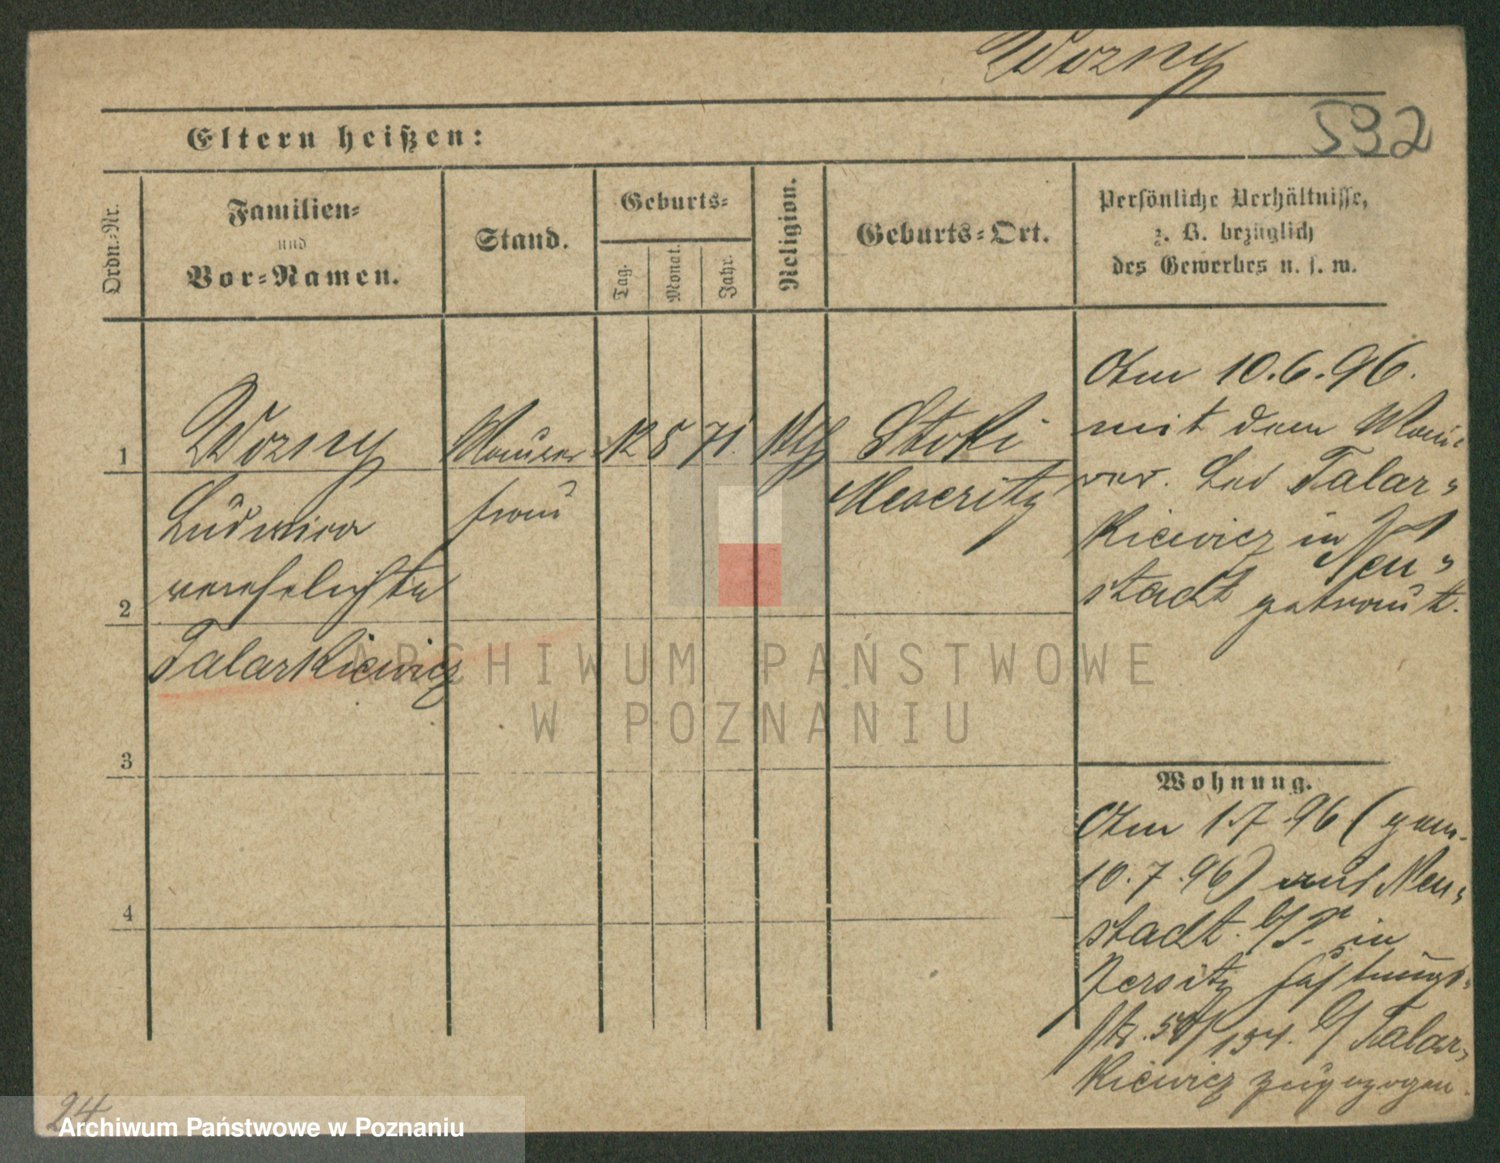 Wozny
532
Eltern heißen:
Ordn.-Nr.
Familien-
und
Vor-Namen.
Stand.
Geburts-
Tag.
Monat.
Jahr.
Religion.
Geburts-Ort.
Persönliche Verhältnisse,
z. B. bezüglich
des Gewerbes u. s. w.
1
Wozny
Ludwina
verehelichte
Talarkiewicz
Maurer
frau
12 5 71.
kth
Stoki
Meseritz
Am 10.6.96.
mit dem Mau-
rer. Talar-
kiewicz in Neu-
stadt getraut.
2
3
4
Wohnung.
Am 1.7.96 (gem.
10.7.96) aus Neu-
stadt b/P. in
Jersitz
134. b/ Talar-
kiewicz zugezogen.
24
ARCHIWUM PAŃSTWOWE
W POZNANIU
Archiwum Państwowe w Poznaniu